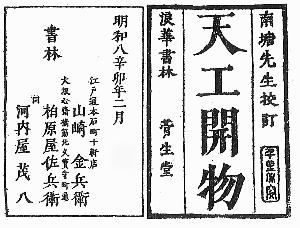 南塘先生校訂
天工開物
浪華書林 菅生堂
千里必究
明和八辛卯年二月
書林
江戸通本石町十軒店
山崎金兵衛
大坂心斎橋筋北久宝寺町
柏原屋佐兵衛
同
河内屋茂八